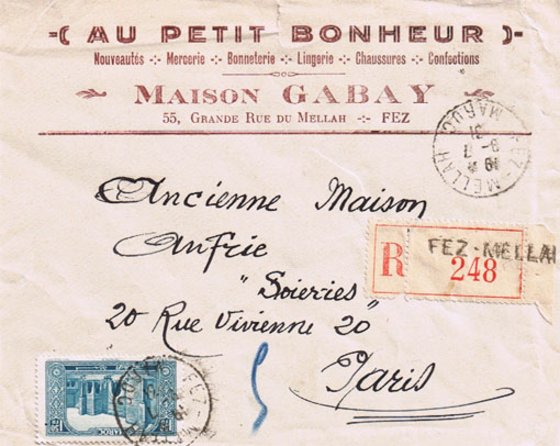 AU PETIT BONHEUR
Nouveautés -:- Mercerie -:- Bonneterie -:- Lingerie -:- Chaussures -:- Confections
MAISON GABAY
55, GRANDE RUE DU MELLAH -:- FEZ
FEZ-MELLAH
MAROC
Ancienne Maison
Anfrie
"Soieries"
20 Rue Vivienne 20
Paris
R
FEZ-MELLA
248
MAROC
FEZ